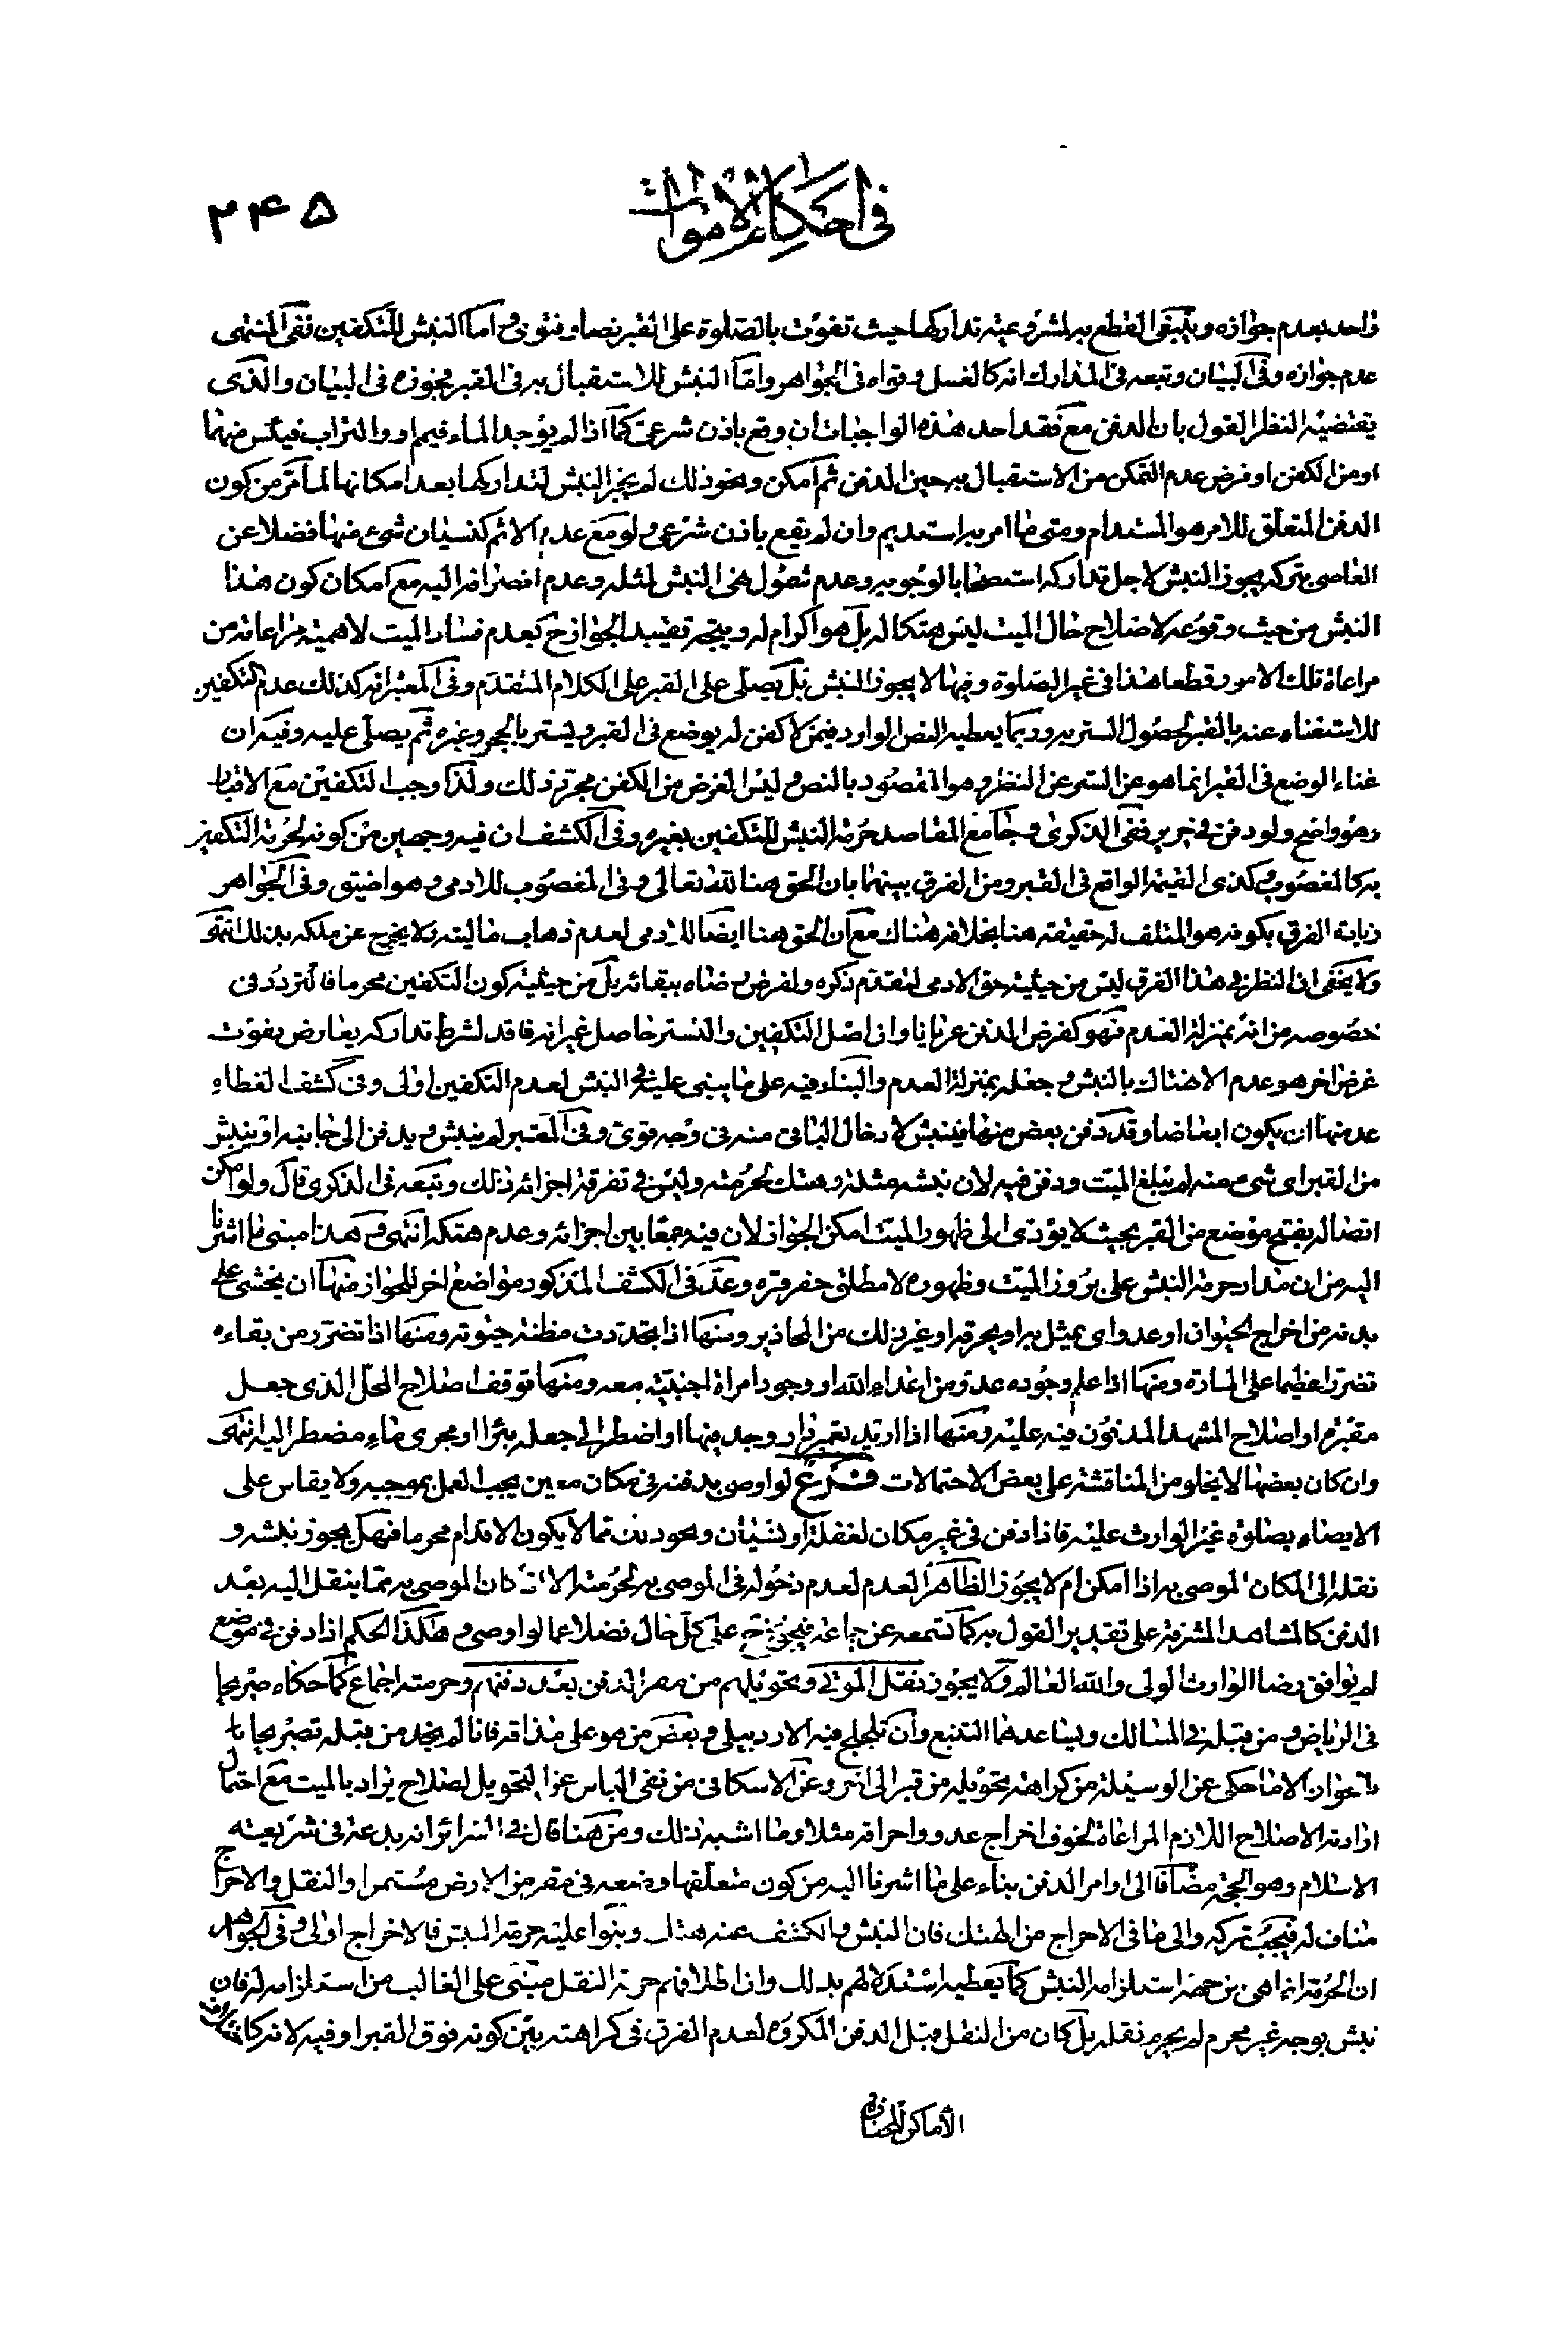 في احكام الاموات
۲۴۵
واحد بعدم جوازه وينبغي القطع به لمشروعية تداركها حيث تفوت بالصلوة على القبر نصا وفتوى و اما النبش للتكفين ففى المنتهى
عدم جوازه وفى البيان وتبعه فى المدارك انه كالغسل وقواه فى الجواهر واما النبش للاستقبال به فى القبر فجوزه فى البيان والذى
يقتضيه النظر القول بان الدفن مع فقد احد هذه الواجبات ان وقع باذن شرعى كما اذا لم يوجد الماء فيمم او والتراب فيئس منهما
او من الكفن او فرض عدم التمكن من الاستقبال به حين الدفن ثم امكن ونحو ذلك لم يجز النبش لتداركها بعد امكانها لما مر من كون
الدفن المتعلق للامر هو المستدام ومتى ما امر به استديم وان لم يقع باذن شرعى ولو مع عدم الاثم كنسيان شئ منها فضلا عن
العاصى بتركه يجوز النبش لاجل تداركه استصحابا لوجوبه وعدم شمول نهى النبش لمثله وعدم انصرافه اليه مع امكان كون هذا
النبش من حيث وقوعه لاصلاح حال الميت ليس هتكا له بل هو اكرام له ويتجه تقييد الجواز ح بعدم فساد الميت لاهمية مراعاته من
مراعاة تلك الامور قطعا هذا فى غير الصلوة وفيها لا يجوز النبش بل يصلى على القبر على الكلام المتقدم وفى المعتبر انه كذلك عدم التكفين
للاستغناء عنه بالقبر لحصول الستر به وربما يعطيه النص الوارد فيمن لا كفن له يوضع فى القبر ويستر بالحجر وغيره ثم يصلى عليه وفيه ان
غناء الوضع فى القبر انما هو عن الستر عن النظر وهو المقصود بالنص وليس الغرض من الكفن مجرد ذلك ولذا وجب التكفين مع الاقبار
وهو واضح ولو دفن فى حرير ففى الذكرى وجامع المقاصد حرمة النبش للتكفين بغيره وفى الكشف ان فيه وجهين من كونه لحرمة التكفين
به كالمغصوب وكذى القيمة الواقع فى القبر ومن الفرق بينهما بان الحق هنا لله تعالى وفى المغصوب للادمى وهو اضيق وفى الجواهر
زيادة الفرق بكونه هو المتلف له حقيقة هنا بخلافه هناك مع ان الحق هنا ايضا للادمى لعدم ذهاب ماليته ولا يخرج عن ملكه بذلك انتهى
ولا يخفى ان النظر فى هذا الفرق ليس من حيثية حق الادمى لتقدم ذكره ولفرض رضاه ببقائه بل من حيثية كون التكفين محرما فالتردد فى
خصوصه من انه بمنزلة العدم فهو كفرض الدفن عريانا وان اصل التكفين والتستر حاصل غير انه فاقد لشرط تداركه يعارض بفوت
غرض اخر هو عدم الاهتاك بالنبش وجعله بمنزلة العدم والبناء فيه على ما يبنى عليه فى النبش لعدم التكفين اولى وفى كشف الغطاء
عد منها ان يكون ابعاضا وقد دفن بعض منها فينبش لادخال الباقى منه فى وجه قوى وفى المعتبر لم ينبش ويدفن الى جانبه او ينبش
من القبر اى شئ منه لم يبلغ الميت ودفن فيه لان نبشه مثلة وهتك لحرمته وليس فى تفرقة اجزائه ذلك وتبعه فى الذكرى قال ولو امكن
اتصاله بفتح موضع من القبر بحيث لا يؤدى الى ظهور الميت امكن الجواز لان فيه جمعا بين اجزائه وعدم هتكه انتهى وهذا مبنى ما اشرنا
اليه من ان مدار حرمة النبش على بروز الميت وظهوره لا مطلق حفر قبره وعد فى الكشف المذكور مواضع اخر للجواز منها ان يخشى على
بدنه من اخراج الحيوان او عدو اى يمثل به او يحرقه او غير ذلك من المحاذير ومنها اذا تجددت مظنة حيوته ومنها اذا تضرر من بقاءه
تضررا عظيما على المارة ومنها اذا علم وجوده عدو من اعداء الله او وجود امراة اجنبية معه ومنها توقف اصلاح المحل الذى جعل
مقبرة او اصلاح المشهد المدفون فيه عليه ومنها اذا اريد تعمير دار وجد فيها او اضطر الى جعله بئرا او مجرى ماء مضطر اليه انتهى
وان كان بعضها لا يخلو من المناقشة على بعض الاحتمالات فرع لو اوصى بدفنه فى مكان معين يجب العمل بموجبه ولا يقاس على
الايصاء بصلوة غير الوارث عليه فاذا دفن فى غير مكان لغفلة او نسيان ونحو ذلك مما لا يكون الاقدام محرما فهل يجوز نبشه و
نقله الى المكان الموصى به اذا امكن ام لا يجوز الظاهر العدم لعدم دخوله فى الموصى به لحرمته الا اذا كان الموصى به مما ينقل اليه بعد
الدفن كالمشاهد المشرفة على تقدير القول به كما ستسمعه عن جماعة فيجوز ح على كل حال فضلا عما لو اوصى وهكذا الحكم اذا دفن فى موضع
لم يوافق رضا الوارث الولى والله العالم ولا يجوز نقل الموتى وتحويلهم من مصر الدفن بعد دفنهم وحرمته اجماع كما حكاه صريحا
فى الرياض ومن قبله فى المسالك ويساعدهما التتبع وان تلجلج فيه الاردبيلى وبعض من هو على مذاقه فانا لم نجد من قبله تصريحا
بالجواز الا ما حكى عن الوسيلة من كراهته تحويله من قبر الى اخر وعن الاسكافى من نفى الباس عن التحويل لصلاح يراد بالميت مع احتمال
ارادته الاصلاح اللازم المراعاة لخوف اخراج عدو واحراقه مثلا وما اشبه ذلك ومن هنا قال فى السرائر انه بدعة فى شريعة
الاسلام وهو الحجة مضافا الى اوامر الدفن بناء على ما اشرنا اليه من كون متعلقها وضعه فى مقر من الارض مستمرا والنقل والاخراج
مناف له فيجب تركه والى ما فى الاخراج من الهتك فان النبش والكشف عنه هتك وبنوا عليه حرمة النبش فالاخراج اولى وفى الجواهر
ان الحرمة انما هى من جهة استلزامه النبش كما يعطيه استدلالهم بذلك وان اطلاقهم حرمة النقل مبنى على الغالب من استلزامه له فان
نبش بوجه غير محرم لم يحرم نقله بل كان من النقل قبل الدفن المكروه لعدم الفرق فى كراهته بين كونه فوق القبر او فيه لانه كاشرف
الاماكن للجنازة